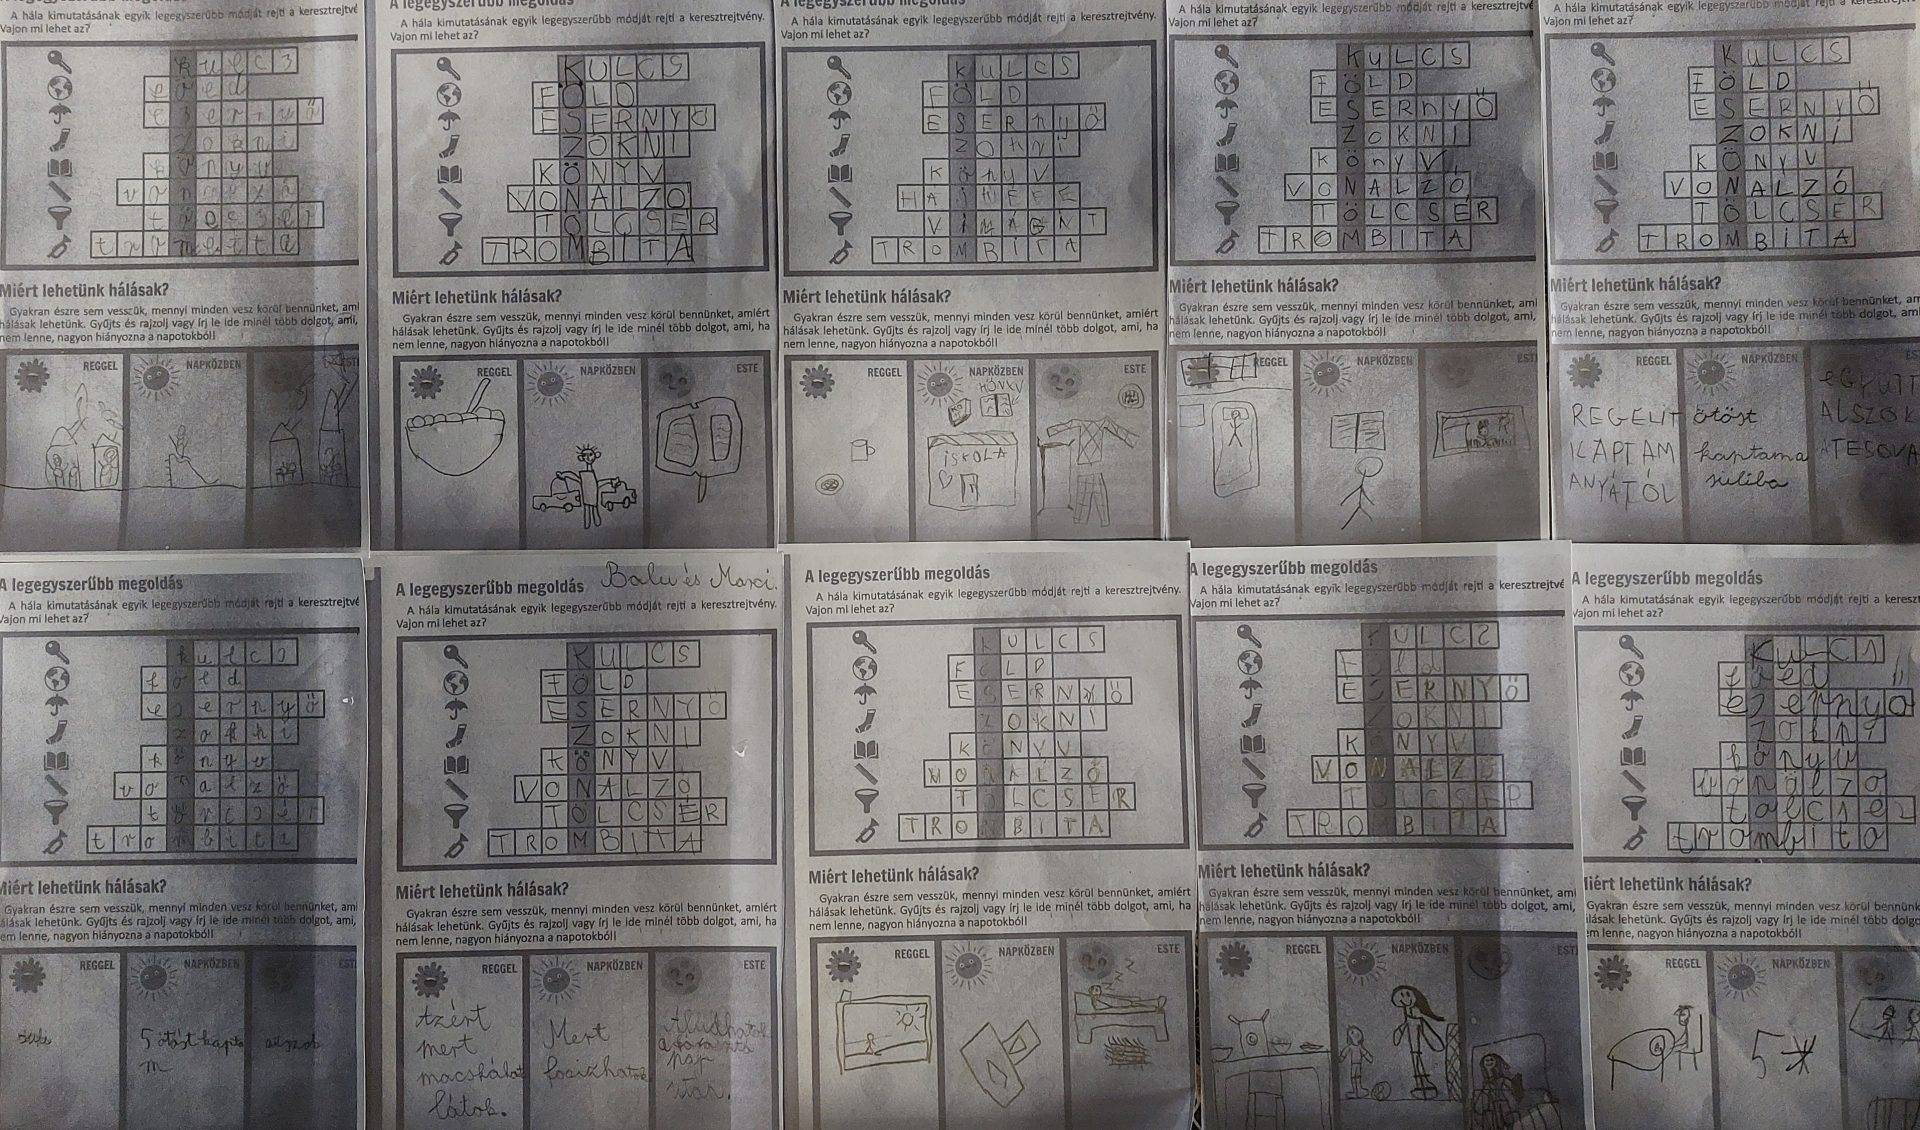 A legegyszerűbb megoldás
A hála kimutatásának egyik legegyszerűbb módját rejti a keresztrejtvé
Vajon mi lehet az?
Miért lehetünk hálásak?
Gyakran észre sem vesszük, mennyi minden vesz körül bennünket, ami
hálásak lehetünk. Gyűjts és rajzolj vagy írj le ide minél több dolgot, ami,
nem lenne, nagyon hiányozna a napotokból!
REGGEL
NAPKÖZBEN
A legegyszerűbb megoldás
A hála kimutatásának egyik legegyszerűbb módját rejti a keresztrejtvény.
Vajon mi lehet az?
KULCS
FÖLD
ESERNYŐ
ZOKNI
KÖNYV
VONALZÓ
TÖLCSÉR
TROMBITA
Miért lehetünk hálásak?
Gyakran észre sem vesszük, mennyi minden vesz körül bennünket, amiért
hálásak lehetünk. Gyűjts és rajzolj vagy írj le ide minél több dolgot, ami, ha
nem lenne, nagyon hiányozna a napotokból!
REGGEL
NAPKÖZBEN
ESTE
A legegyszerűbb megoldás
A hála kimutatásának egyik legegyszerűbb módját rejti a keresztrejtvény.
Vajon mi lehet az?
KULCS
FÖLD
ESERnyŐ
KönyV
TROMBiTA
Miért lehetünk hálásak?
Gyakran észre sem vesszük, mennyi minden vesz körül bennünket, amiért
hálásak lehetünk. Gyűjts és rajzolj vagy írj le ide minél több dolgot, ami, ha
nem lenne, nagyon hiányozna a napotokból!
REGGEL
NAPKÖZBEN
ESTE
iSKOLA
A hála kimutatásának egyik legegyszerűbb módját rejti a keresztrejtvé
Vajon mi lehet az?
KuLCS
FÖLD
ESERnyŐ
ZOKNI
KönyV
VONALZÓ
TÖLCSÉR
TROMBITA
Miért lehetünk hálásak?
Gyakran észre sem vesszük, mennyi minden vesz körül bennünket, ami
hálásak lehetünk. Gyűjts és rajzolj vagy írj le ide minél több dolgot, ami,
nem lenne, nagyon hiányozna a napotokból!
REGGEL
NAPKÖZBEN
EST
A hála kimutatásának egyik legegyszerűbb módját rejti a
Vajon mi lehet az?
KuLCS
FÖLD
ESERNYŐ
ZOKNi
KÖNYV
VONALZÓ
TÖLCSÉR
TROMBiTA
Miért lehetünk hálásak?
Gyakran észre sem vesszük, mennyi minden vesz körül bennünket, am
hálásak lehetünk. Gyűjts és rajzolj vagy írj le ide minél több dolgot, ami,
nem lenne, nagyon hiányozna a napotokból!
REGGEL
NAPKÖZBEN
ES
REGELIT
KAPTAM
ANYÁTÓL
ötöst
kaptama
suliba
EGYÜTT
ALSZOK
ATESOVA
A legegyszerűbb megoldás
A hála kimutatásának egyik legegyszerűbb módját rejti a keresztrejtvé
Vajon mi lehet az?
föld
esernyő
könyv
trombita
Miért lehetünk hálásak?
Gyakran észre sem vesszük, mennyi minden vesz körül bennünket, ami
hálásak lehetünk. Gyűjts és rajzolj vagy írj le ide minél több dolgot, ami,
em lenne, nagyon hiányozna a napotokból!
REGGEL
NAPKÖZBEN
EST
5 ötöst kapta
m
alszok
A legegyszerűbb megoldás
Balu és Marci.
A hála kimutatásának egyik legegyszerűbb módját rejti a keresztrejtvény.
Vajon mi lehet az?
KULCS
FÖLD
ESERNYŐ
ZOKNI
KÖNYV
VONALZÓ
TÖLCSÉR
TROMBITA
Miért lehetünk hálásak?
Gyakran észre sem vesszük, mennyi minden vesz körül bennünket, amiért
hálásak lehetünk. Gyűjts és rajzolj vagy írj le ide minél több dolgot, ami, ha
nem lenne, nagyon hiányozna a napotokból!
REGGEL
NAPKÖZBEN
ESTE
Azért
mert
macskálat
látok.
Mert
focizhatok
nap
után.
A legegyszerűbb megoldás
A hála kimutatásának egyik legegyszerűbb módját rejti a keresztrejtvény.
Vajon mi lehet az?
KULCS
FÖLD
ESERNYŐ
ZOKNI
KÖNYV
TÖLCSÉR
TROMBITA
Miért lehetünk hálásak?
Gyakran észre sem vesszük, mennyi minden vesz körül bennünket, amiért
hálásak lehetünk. Gyűjts és rajzolj vagy írj le ide minél több dolgot, ami, ha
nem lenne, nagyon hiányozna a napotokból!
REGGEL
NAPKÖZBEN
ESTE
A legegyszerűbb megoldás
A hála kimutatásának egyik legegyszerűbb módját rejti a keresztrejtvé
Vajon mi lehet az?
ESERNYŐ
ZOKNI
KÖNYV
VONALZÓ
TROMBITA
Miért lehetünk hálásak?
Gyakran észre sem vesszük, mennyi minden vesz körül bennünket, ami
hálásak lehetünk. Gyűjts és rajzolj vagy írj le ide minél több dolgot, ami,
nem lenne, nagyon hiányozna a napotokból!
REGGEL
NAPKÖZBEN
EST
A legegyszerűbb megoldás
A hála kimutatásának egyik legegyszerűbb módját rejti a kereszt
Vajon mi lehet az?
könyv
trombita
Miért lehetünk hálásak?
Gyakran észre sem vesszük, mennyi minden vesz körül bennünk
álásak lehetünk. Gyűjts és rajzolj vagy írj le ide minél több dolgo
em lenne, nagyon hiányozna a napotokból!
REGGEL
NAPKÖZBEN
5*